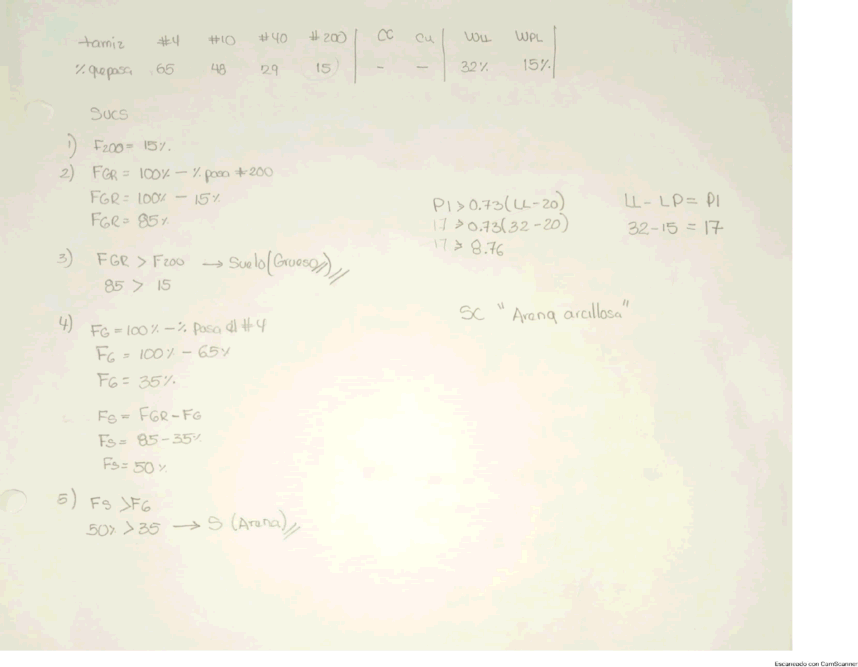 tamiz #4 #10 #40 #200 CC Cu WLL WPL
% que pasa 65 48 29 15 - - 32% 15%
SUCS
1) F200 = 15%.
2) FGR = 100% - % pasa #200
FGR = 100% - 15%
FGR = 85%
3) FGR > F200 → Suelo (Grueso)
85 > 15
4) FG = 100% - % pasa el #4
FG = 100% - 65%
FG = 35%.
FS = FGR - FG
FS = 85 - 35%
FS = 50%
5) FS > FG
50% > 35 → S (Arena)
PI > 0.73(LL-20)
17 > 0.73(32-20)
17 > 8.76
LL - LP = PI
32 - 15 = 17
SC "Arena arcillosa"
Escaneado con CamScanner